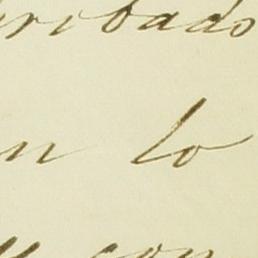 ribados
n lo
y con